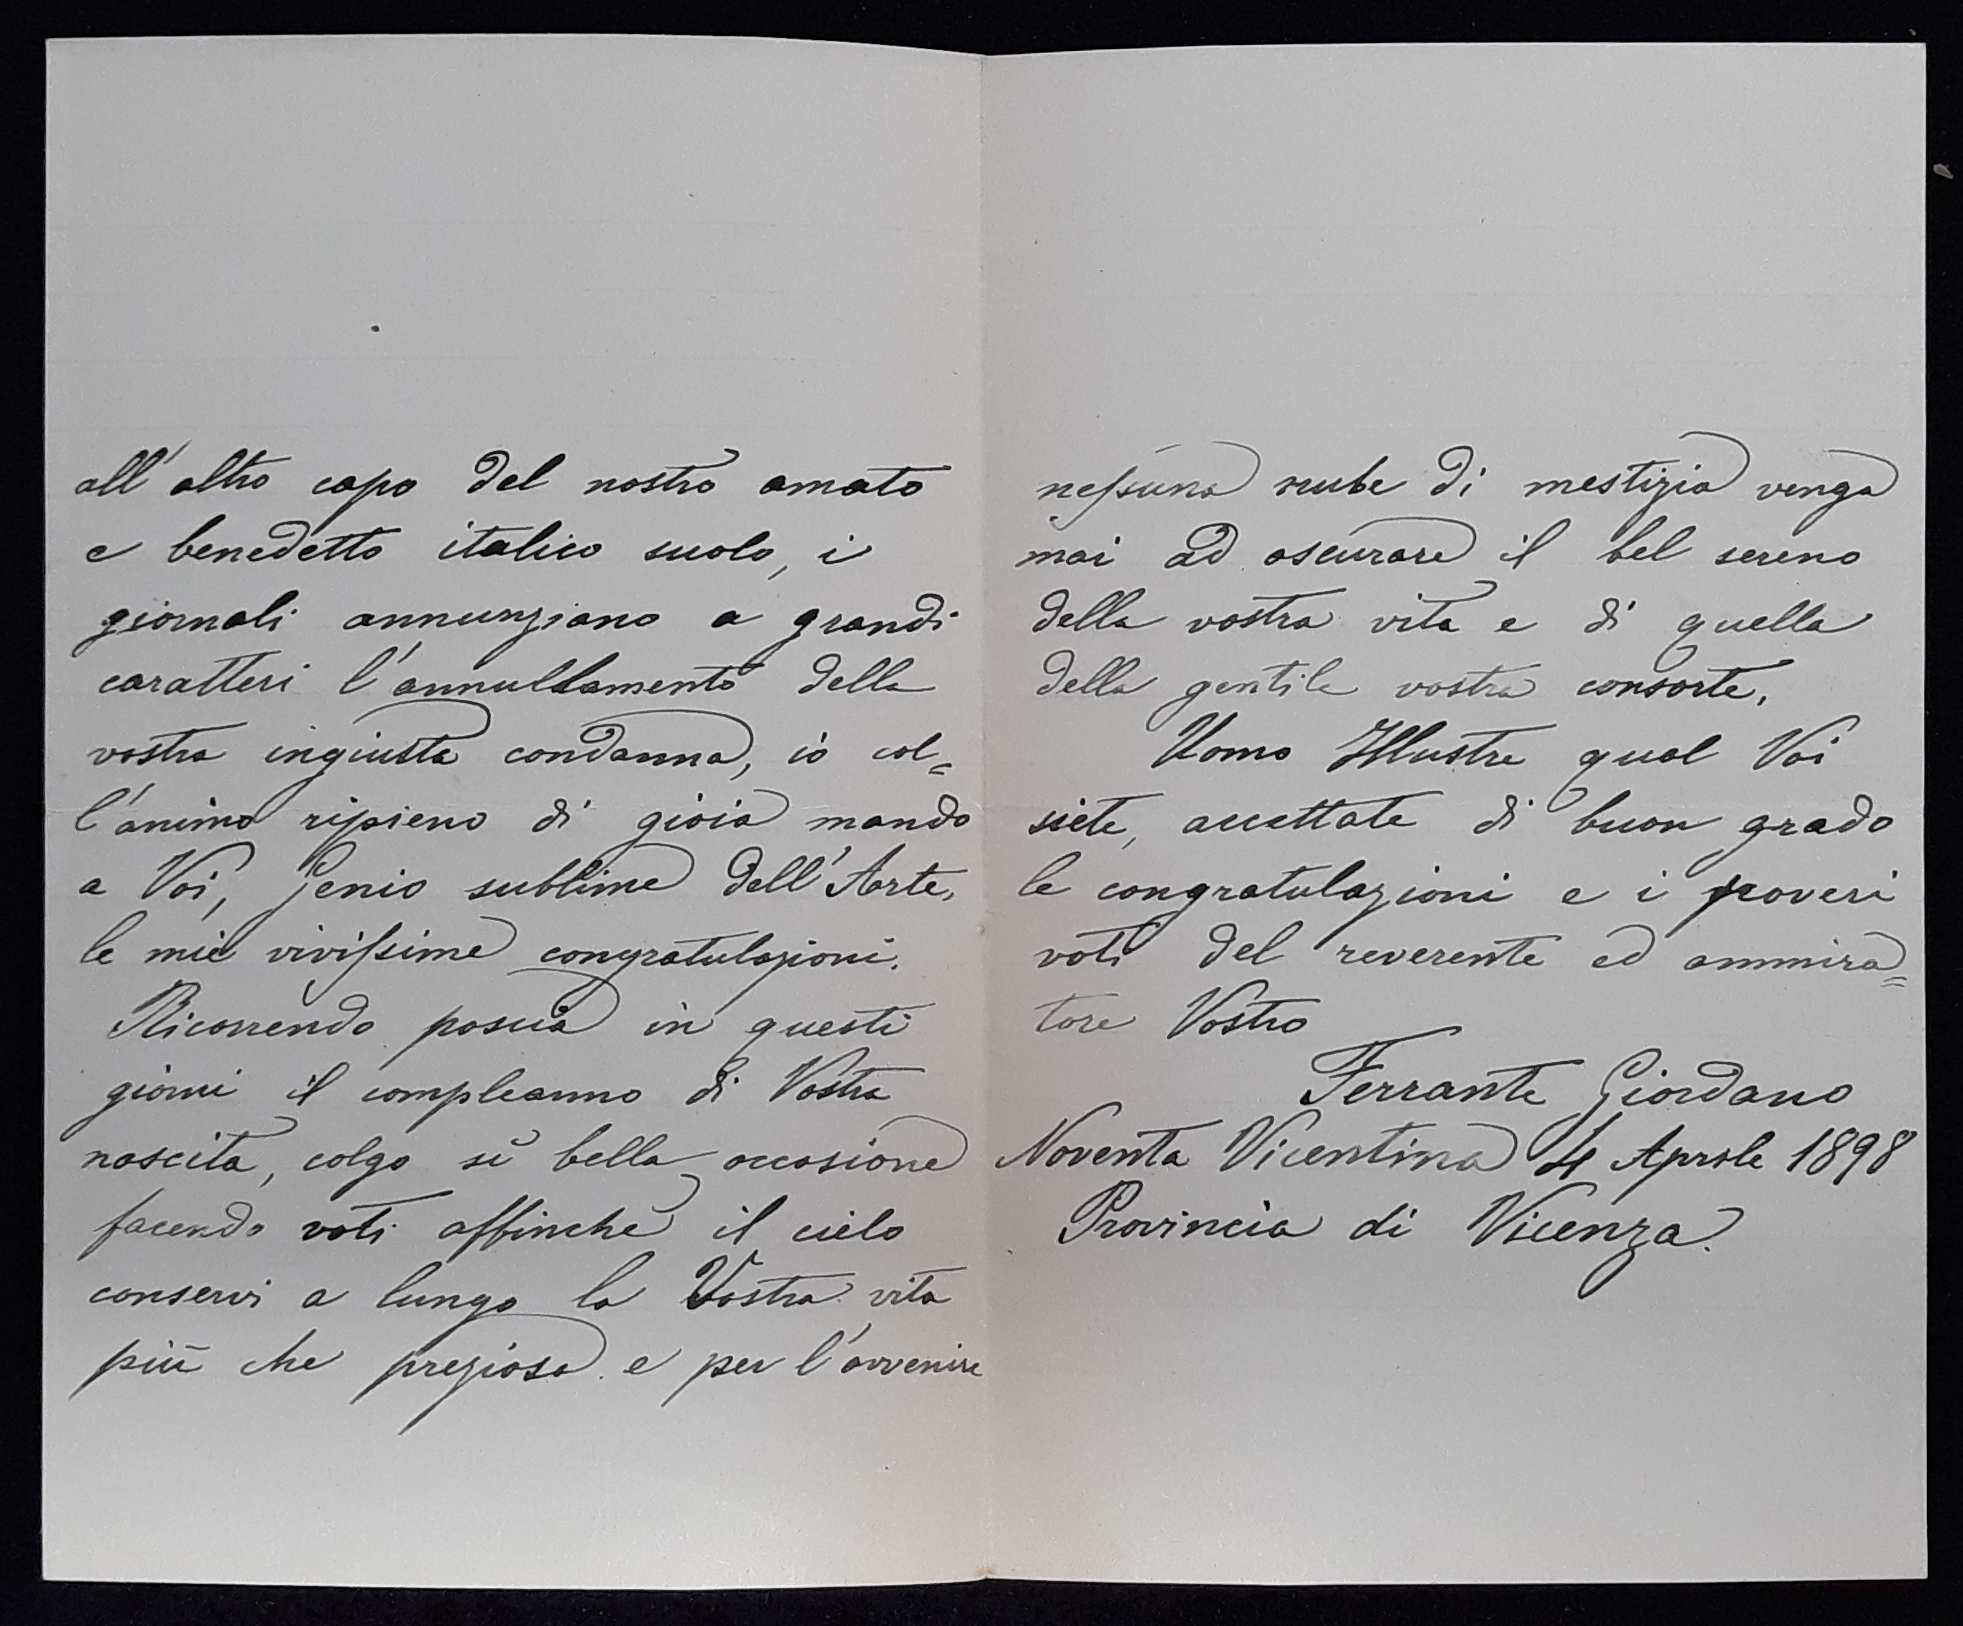 all'altro capo del nostro amato
e benedetto italico suolo, i
giornali annunziano a grandi
caratteri l'annullamento della
vostra ingiusta condanna, io col=
l'animo ripieno di gioia mando
a Voi, Genio sublime dell'Arte,
le mie vivissime congratulazioni.
Ricorrendo poscia in questi
giorni il compleanno di Vostra
nascita, colgo sì bella occasione
facendo voti affinchè il cielo
conservi a lungo la Vostra vita
più che preziosa e per l'avvenire
nessuna nube di mestizia venga
mai ad oscurare il bel sereno
della vostra vita e di quella
della gentile vostra consorte.
Uomo Illustre qual Voi
siete, accettate di buon grado
le congratulazioni e i poveri
voti del reverente ed ammira=
tore Vostro
Ferrante Giordano
Noventa Vicentina 4 Aprile 1898
Provincia di Vicenza.